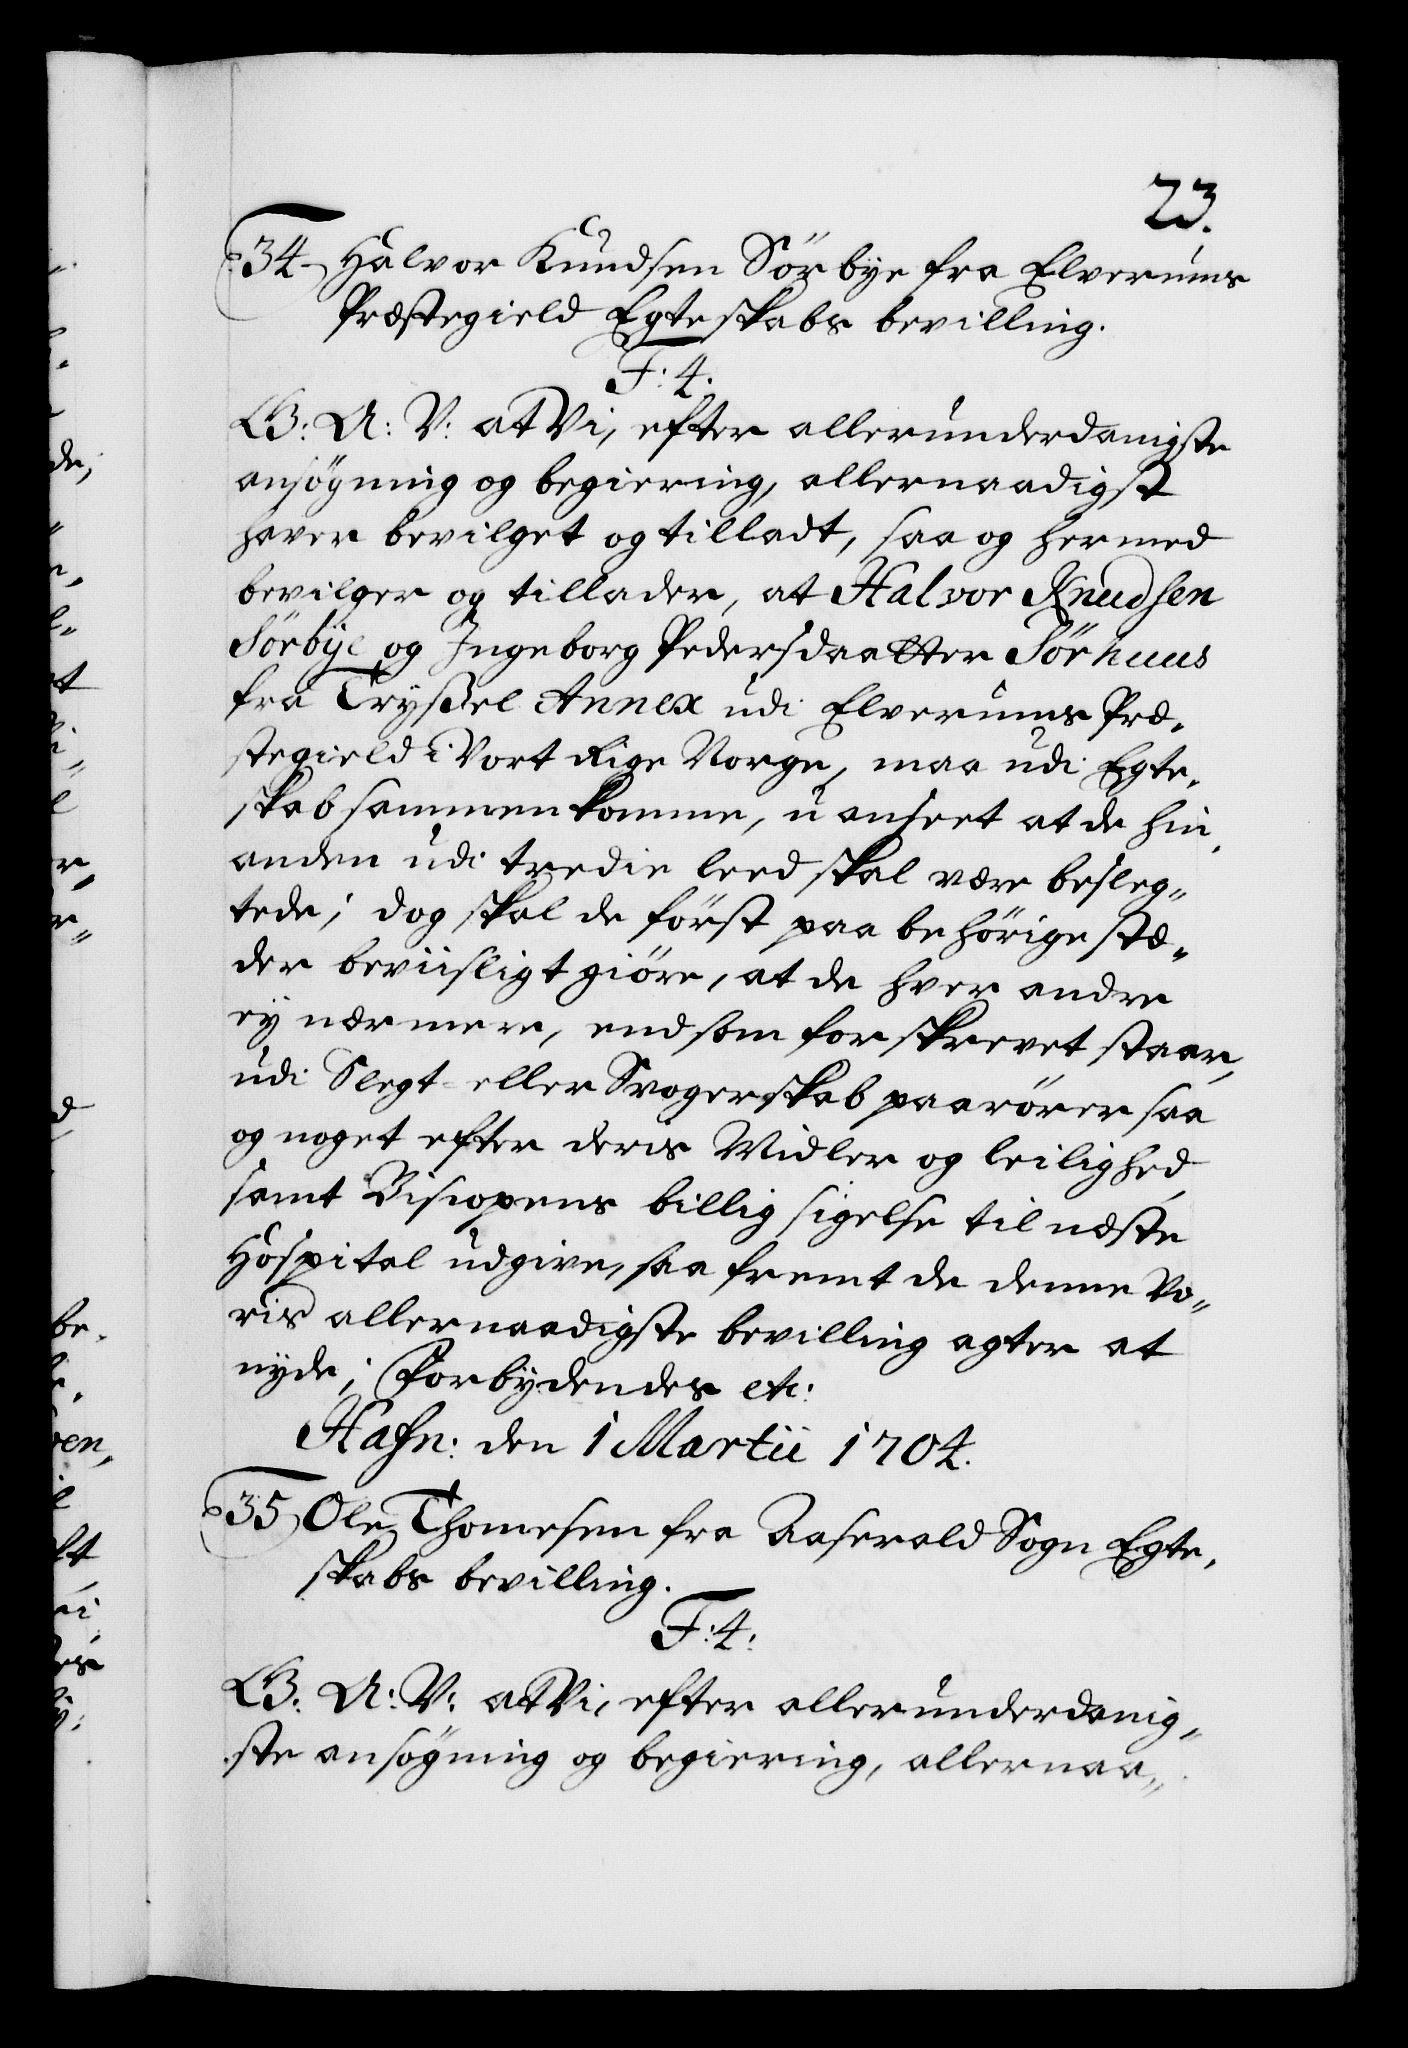 23.
34. Halvor Knudsen Sörbye fra Elverums
Præstegield Egteskabs bevilling.
F: 4.
G: A: V: at Vi, efter allerunderdanigste
ansögning og begiering, allernaadigst
haver bevilget og tilladt, saa og hermed
bevilger og tillader, at Halvor Knudsen
Sörbÿe og Ingeborg Pedersdaatter Sörhuus
fra Tryßel Annex udi Elverums Præ-
stegield i Vort Rige Norge, maa udi Egte-
skab sammenkomme, uanseet at de hin-
anden udi tredie leed skal være besleg-
tede; dog skal de först paa behörige stæ-
der beviisligt giöre, at de hver andre
eÿ nærmere, end som forskrevet staar,
udi Slegt- eller Svogerskab paarörer saa
og noget efter deris Midler og leilighed
samt Biscopens billig sigelse til næste
Hospital udgive, saa fremt de denne Vo-
ris allernaadigste bevilling agter at
nÿde; Forbÿdendes etc:
Hafn: den 1 Martii 1704.
35 Ole Thomesen fra Aaserald Sogn Egte-
skabs bevilling.
F: 4:
G: A: V: at Vi, efter allerunderdanig-
ste ansögning og begiering, allernaa-